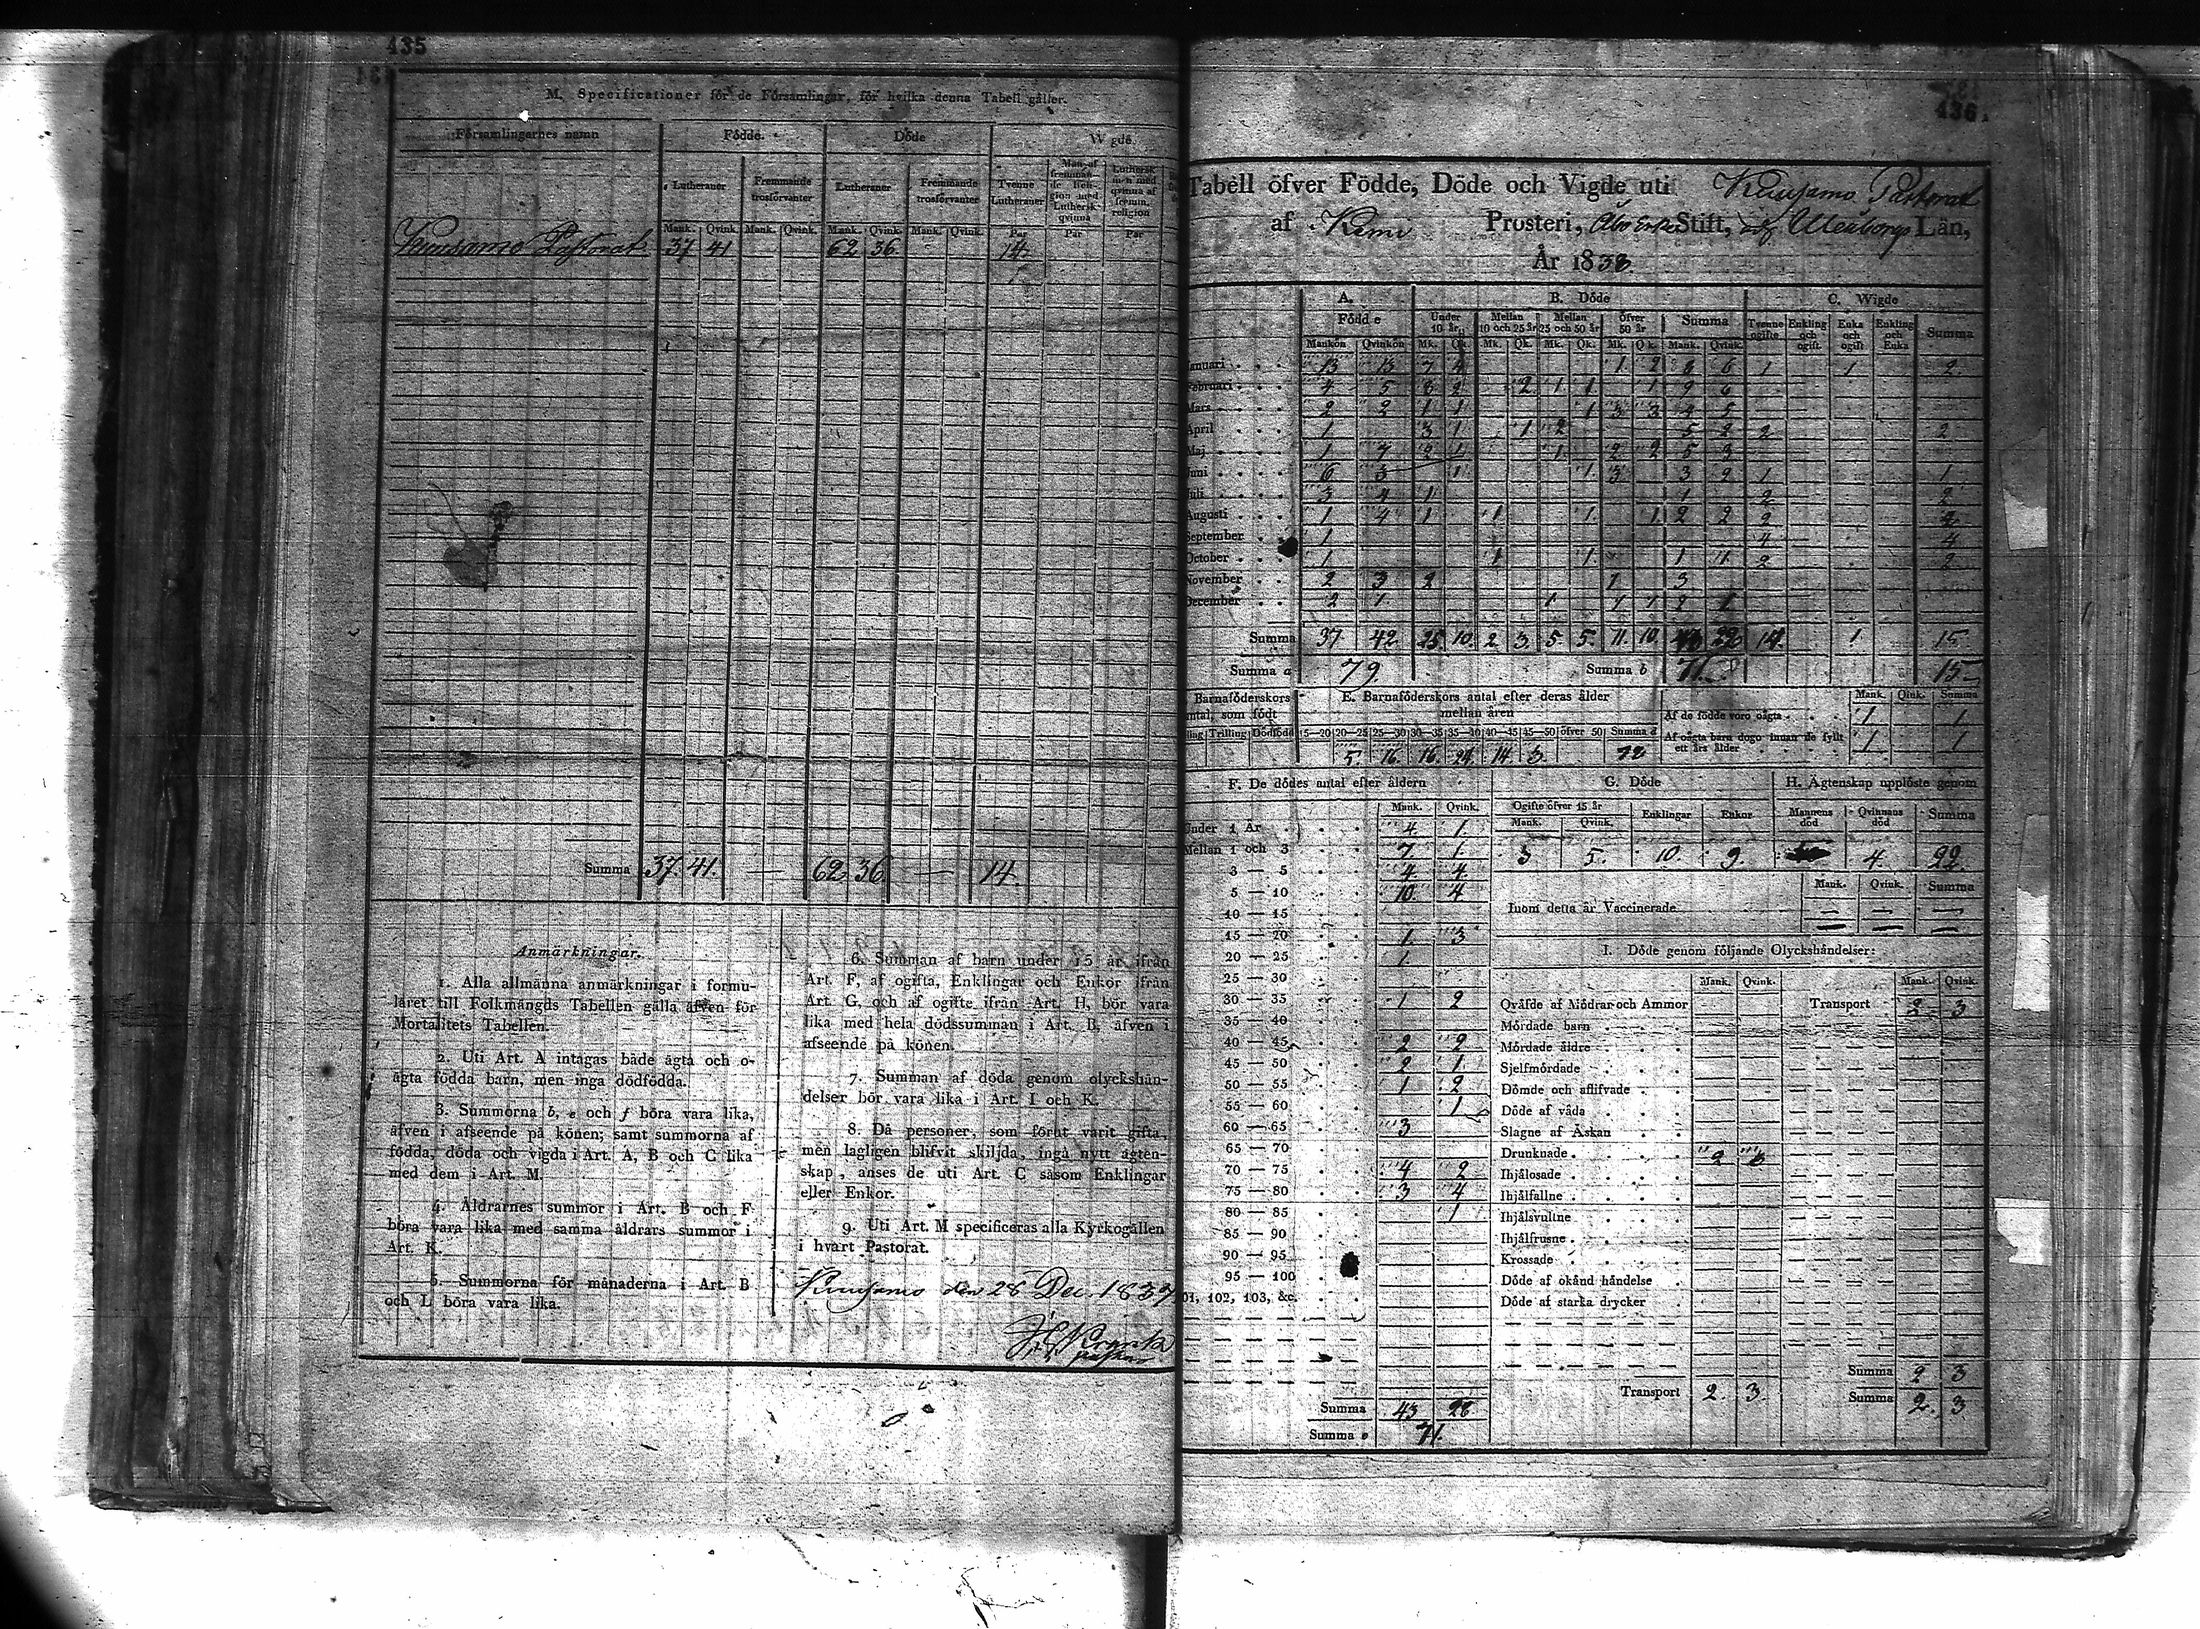 435
M. Specificationer för de Församlingar, för hvilka denna Tabell gäller.
Församlingarnes namn Födde. Döde Wigde
Lutheraner Fremmande trosförvanter Lutheraner Fremmande trosförvanter Tvenne Lutheraner Man af fremmande Religion med Luthersk qvinna Luthersk man med qvinna af fremm. religion
Mank. Qvink. Mank. Qvink. Mank. Qvink. Mank. Qvink. Par Par Par
Kuusamo Pastorat 37 41 62 36 14
Summa 37. 41. — 62 36 — 14.
Anmärkningar.
1. Alla allmänna anmärkningar i formu-
läret till Folkmängds Tabellen gälla äfven för
Mortalitets Tabellen.
2. Uti Art. A intagas både ägta och o-
ägta födda barn, men inga dödfödda.
3. Summorna b, e och f böra vara lika,
äfven i afseende på könen; samt summorna af
födda, döda och vigda i Art. A, B och C lika
med dem i Art. M.
4. Åldrarnes summor i Art. B och F
böra vara lika med samma åldrars summor i
Art. K.
5. Summorna för månaderna i Art. B
och L böra vara lika.
6. Summan af barn under 15 år ifrån
Art. F, af ogifta, Enklingar och Enkor ifrån
Art. G, och af ogifte ifrån Art. H, bör vara
lika med hela dödssumman i Art. B, äfven i
afseende på könen.
7. Summan af döda genom olyckshän-
delser bör vara lika i Art. I och K.
8. Då personer, som förut varit gifta,
men lagligen blifvit skiljda, ingå nytt ägten-
skap, anses de uti Art. C såsom Enklingar
eller Enkor.
9. Uti Art. M specificeras alla Kyrkogällen
i hvart Pastorat.
Kuusamo den 28 Dec. 1837
436.
Tabell öfver Födde, Döde och Vigde uti Kuusamo Pastorat
af Kemi Prosteri, Åbo Erke Stift, och Uleåborgs Län,
År 1838
A. B. Döde C. Wigde
Födde Under 10 år Mellan 10 och 25 år Mellan 25 och 50 år Öfver 50 år Summa Tvenne ogifte Enkling och ogift Enka och ogift Enkling och Enka Summa
Mankön Qvinkön Mk. Qk. Mk. Qk. Mk. Qk. Mk. Qk. Mank. Qvink.
Januari 13 13 7 4 1 2 8 6 1 1 2
Februari 4 5 8 2 2 1 1 1 9 6
Mars 2 2 1 1 1 3 3 4 5
April 1 3 1 1 2 5 2 2 2
Maj 1 7 2 1 1 2 2 5 3
Juni 6 3 1 1 3 3 2 1 1
Juli 3 4 1 1 2 2
Augusti 1 4 1 1 1 1 2 2 2 2
September 1 4 4
October 1 1 1 1 1 2 2
November 2 3 2 1 3
December 2 1 1 1 1 2 1
Summa 37 42 25 10 2 3 5 5 11 10 28 14. 1 15.
Summa a 79. Summa b 71. 15
Barnaföderskors antal, som födt E. Barnaföderskors antal efter deras ålder mellan åren Mank. Qink. Summa
Af de födde voro oägta 1 1
Trilling Dödfödd 15—20 20—25 25—30 30—35 35—40 40—45 45—50 öfver 50 Summa d
Af oägta barn dogo innan de fyllt ett års ålder 1 1
5. 16. 16. 24 14. 3
F. De dödes antal efter åldern G. Döde H. Ägtenskap upplöste genom
Mank. Qvink. Ogifte öfver 15 år Enklingar Enkor Mannens död Qvinnans död Summa
Mank. Qvink.
Under 1 År 4 1
Mellan 1 och 3 7 1 3 5. 10. 9. 4. 22.
3 — 5 4 4
5 — 10 10 4
10 — 15
15 — 20 1. 3
20 — 25 1.
25 — 30
30 — 35 1 2
35 — 40
40 — 45 2 2
45 — 50 2 1
50 — 55 1 2
55 — 60 1
60 — 65 3
65 — 70
70 — 75 4 2
75 — 80 3 4
80 — 85 1
85 — 90
90 — 95
95 — 100
101, 102, 103, &c.
Summa 43 28
Summa e 71.
Mank. Qvink. Summa
Inom detta år Vaccinerade — — —
I. Döde genom följande Olyckshändelser:
Mank. Qvink. Mank. Qvink.
Qväfde af Mödrar och Ammor Transport 2 3
Mördade barn
Mördade äldre
Sjelfmördade
Dömde och aflifvade
Döde af våda
Slagne af Åskan
Drunknade 2 3
Ihjälosade
Ihjälfallne
Ihjälsvultne
Ihjälfrusne
Krossade
Döde af okänd händelse
Döde af starka drycker
Summa 2 3
Transport 2. 3. Summa 2. 3